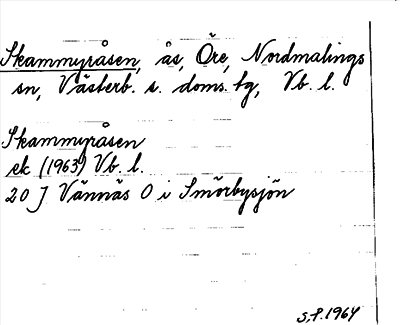 Skammyråsen, ås, Öre, Nordmalings
sn, Västerb. s. doms. tg, Vb. l.
Skammyråsen
ek (1963) Vb. l.
20 J Vännäs O i Smörbysjön
S.P. 1964